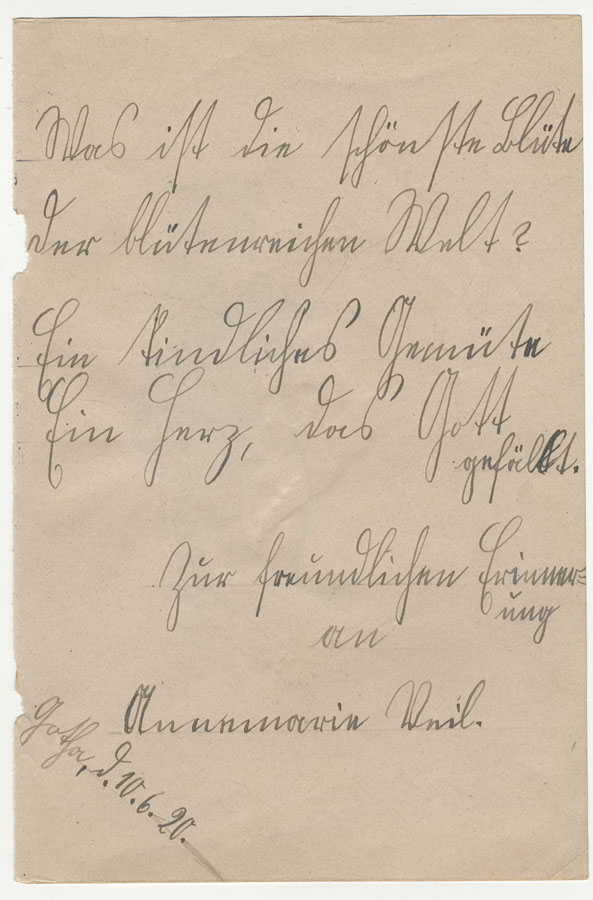 Was ist die schönste Blüte
der blütenreichen Welt?
Ein kindliches Gemüte
Ein Herz, das Gott
gefällt.
Zur freundlichen Erinner=
ung
an
Annemarie Veil.
Gotha, d. 10.6.20.